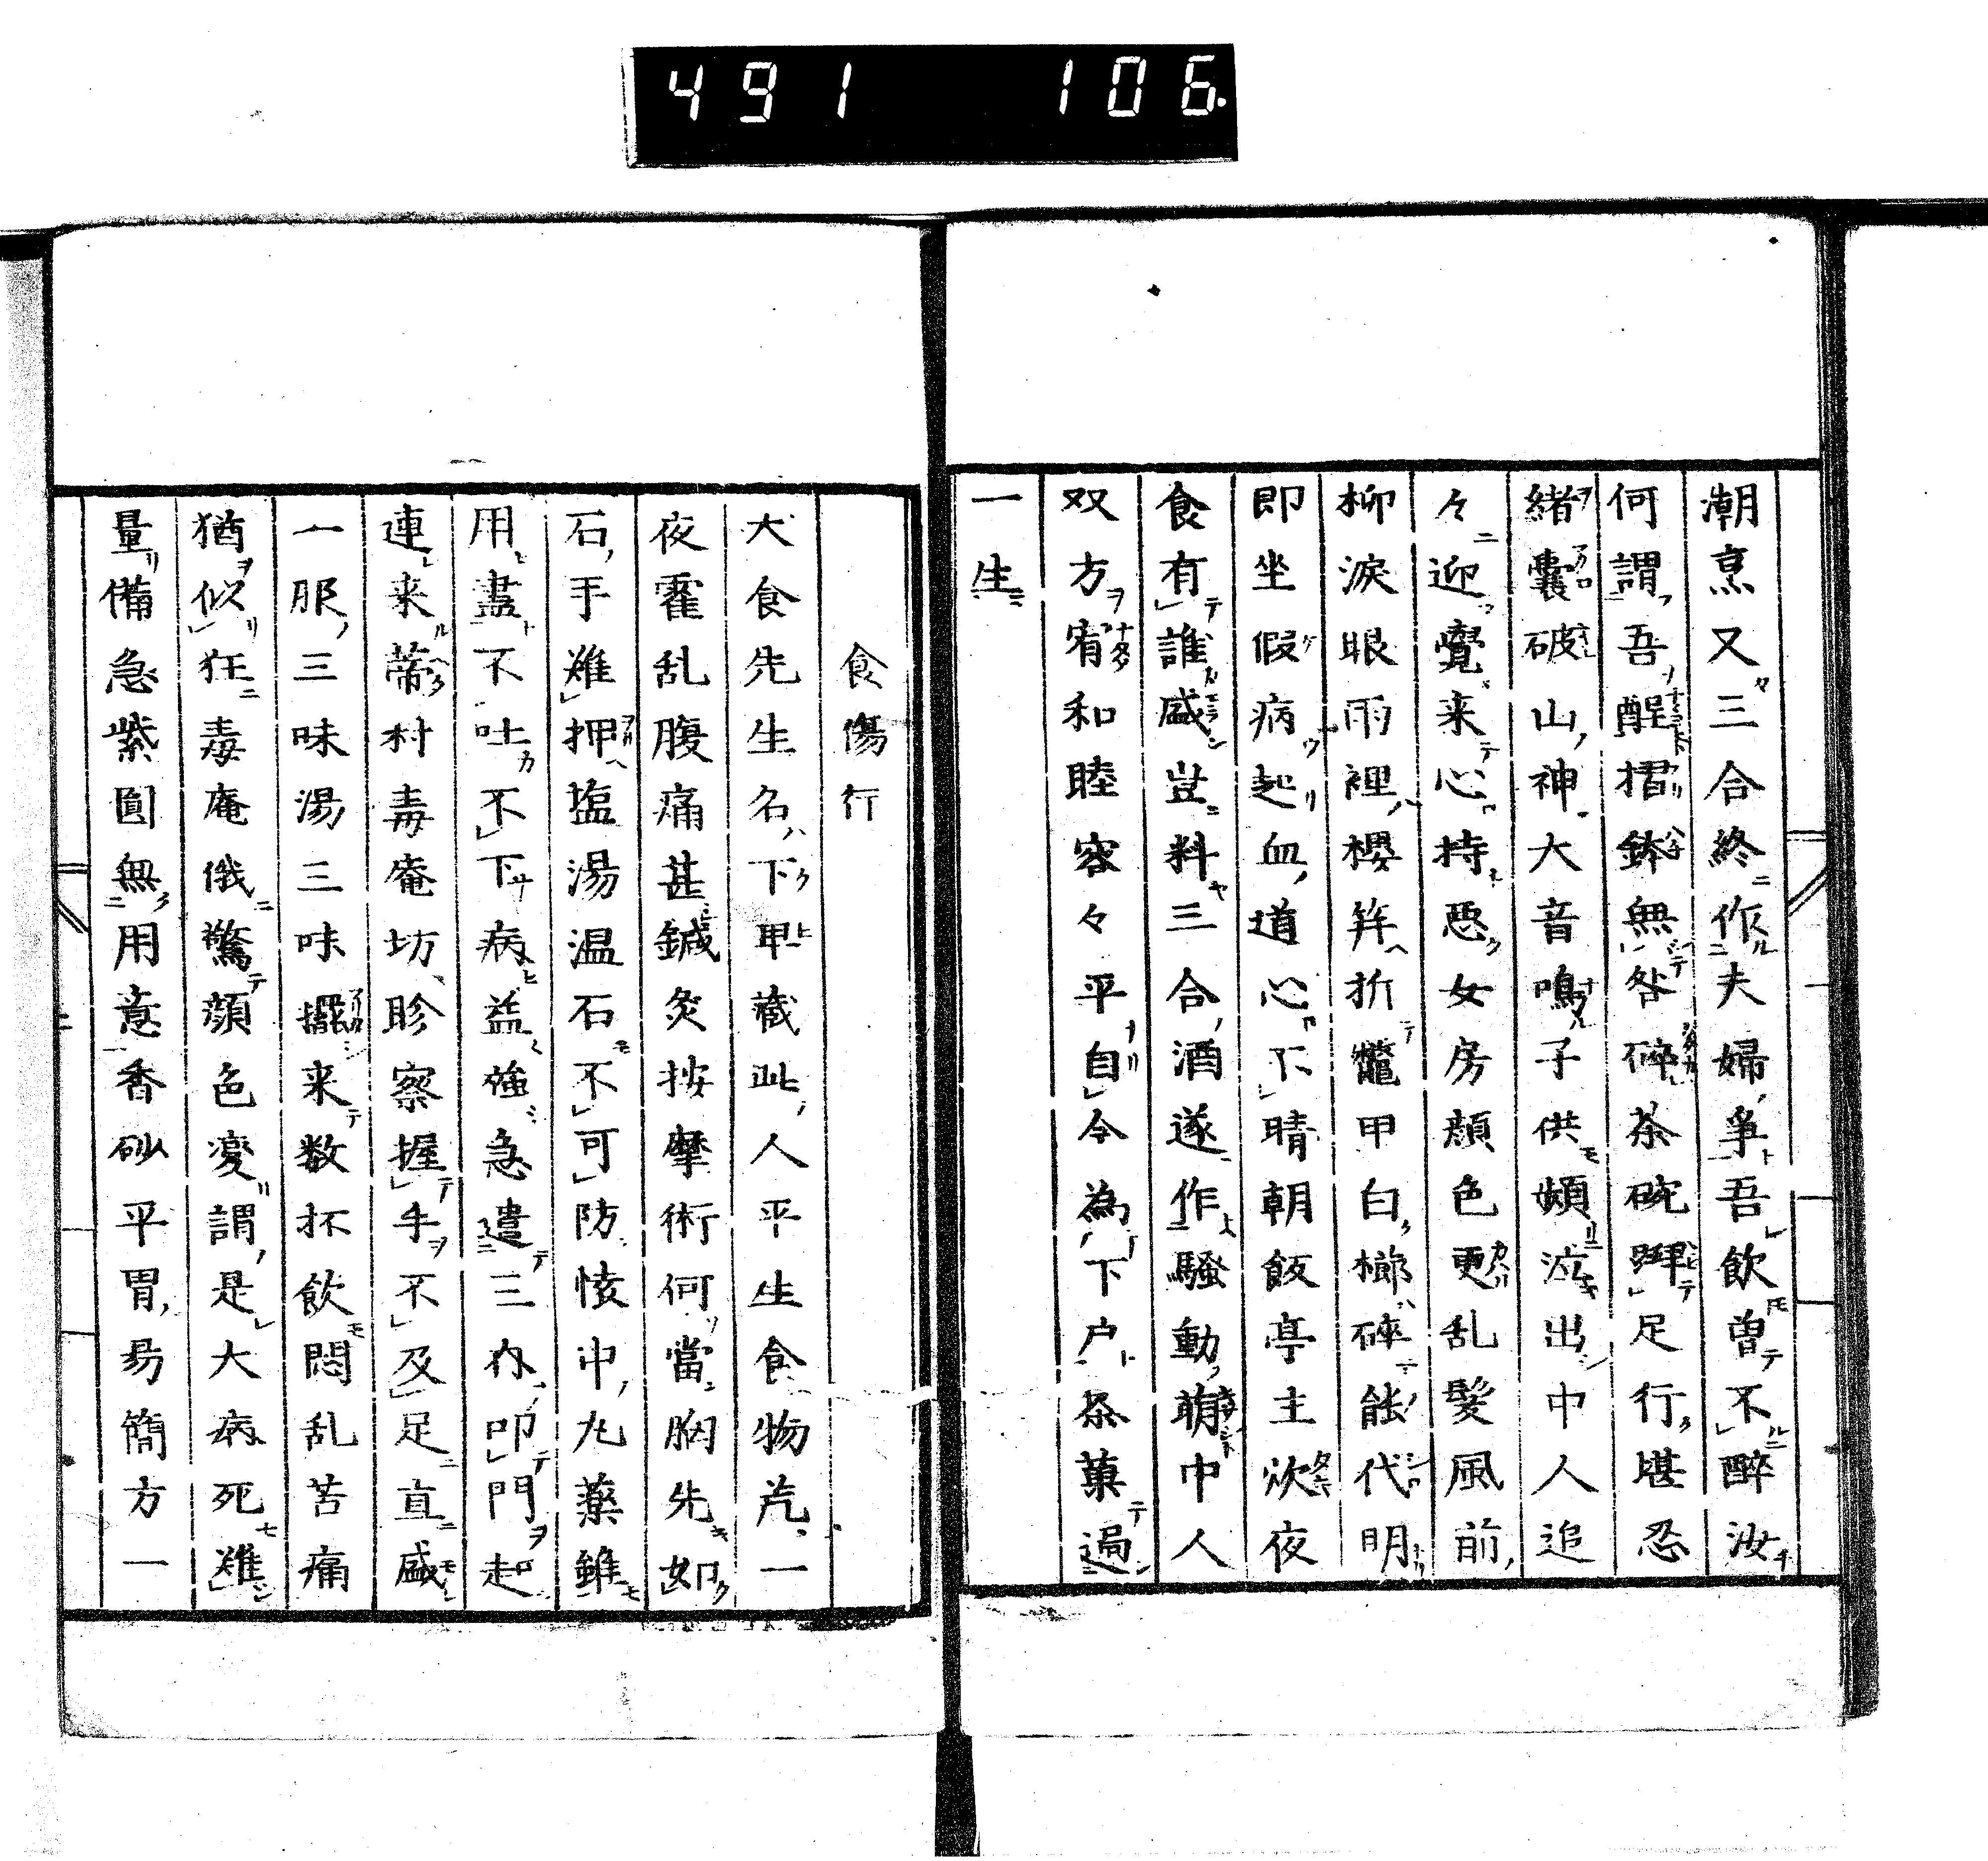 491 106.
潮烹又三合終作夫婦爭吾飲曽不醉汝
何謂吾酲摺鉢無咎碎茶碗踋足行堪忍
緒嚢破山神大音鳴子供頻泣出中人追
々迎覺来心持悪女房顔色更乱髪風前
柳涙眼雨裡櫻笄折鼈甲白櫛碎能代明
即坐假病起血道心下晴朝飯亭主炊夜
食有誰感豈料三合酒遂作騷動萠中人
双方宥和睦容々平自今為下户茶菓過
一生
食傷行
大食先生名下甲藏此人平生食物荒一
夜霍乱腹痛甚鍼灸按摩術何當胸先如
石手難押塩湯温石不可防懐中丸薬雖
用盡不吐不下病益強急遣三介叩門起
連来蒂村毒庵坊胗察握手不及足直感
一服三味湯三味擺来数杯飲悶乱苦痛
猶似狂毒庵俄驚顔色変謂是大病死難
量備急紫圓無用意香砂平胃易簡方一